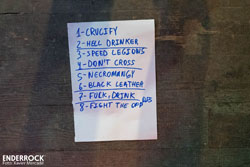 1-CRUCIFY
2-HELL DRINKER
3-SPEED LEGIONS
4-DON'T CROSS
5-NECROMANGY
6-BLACK LEATHER
7-FUCK, DRINK
8-FIGHT THE
ENDERROCK
Foto: Xavier Mercadé